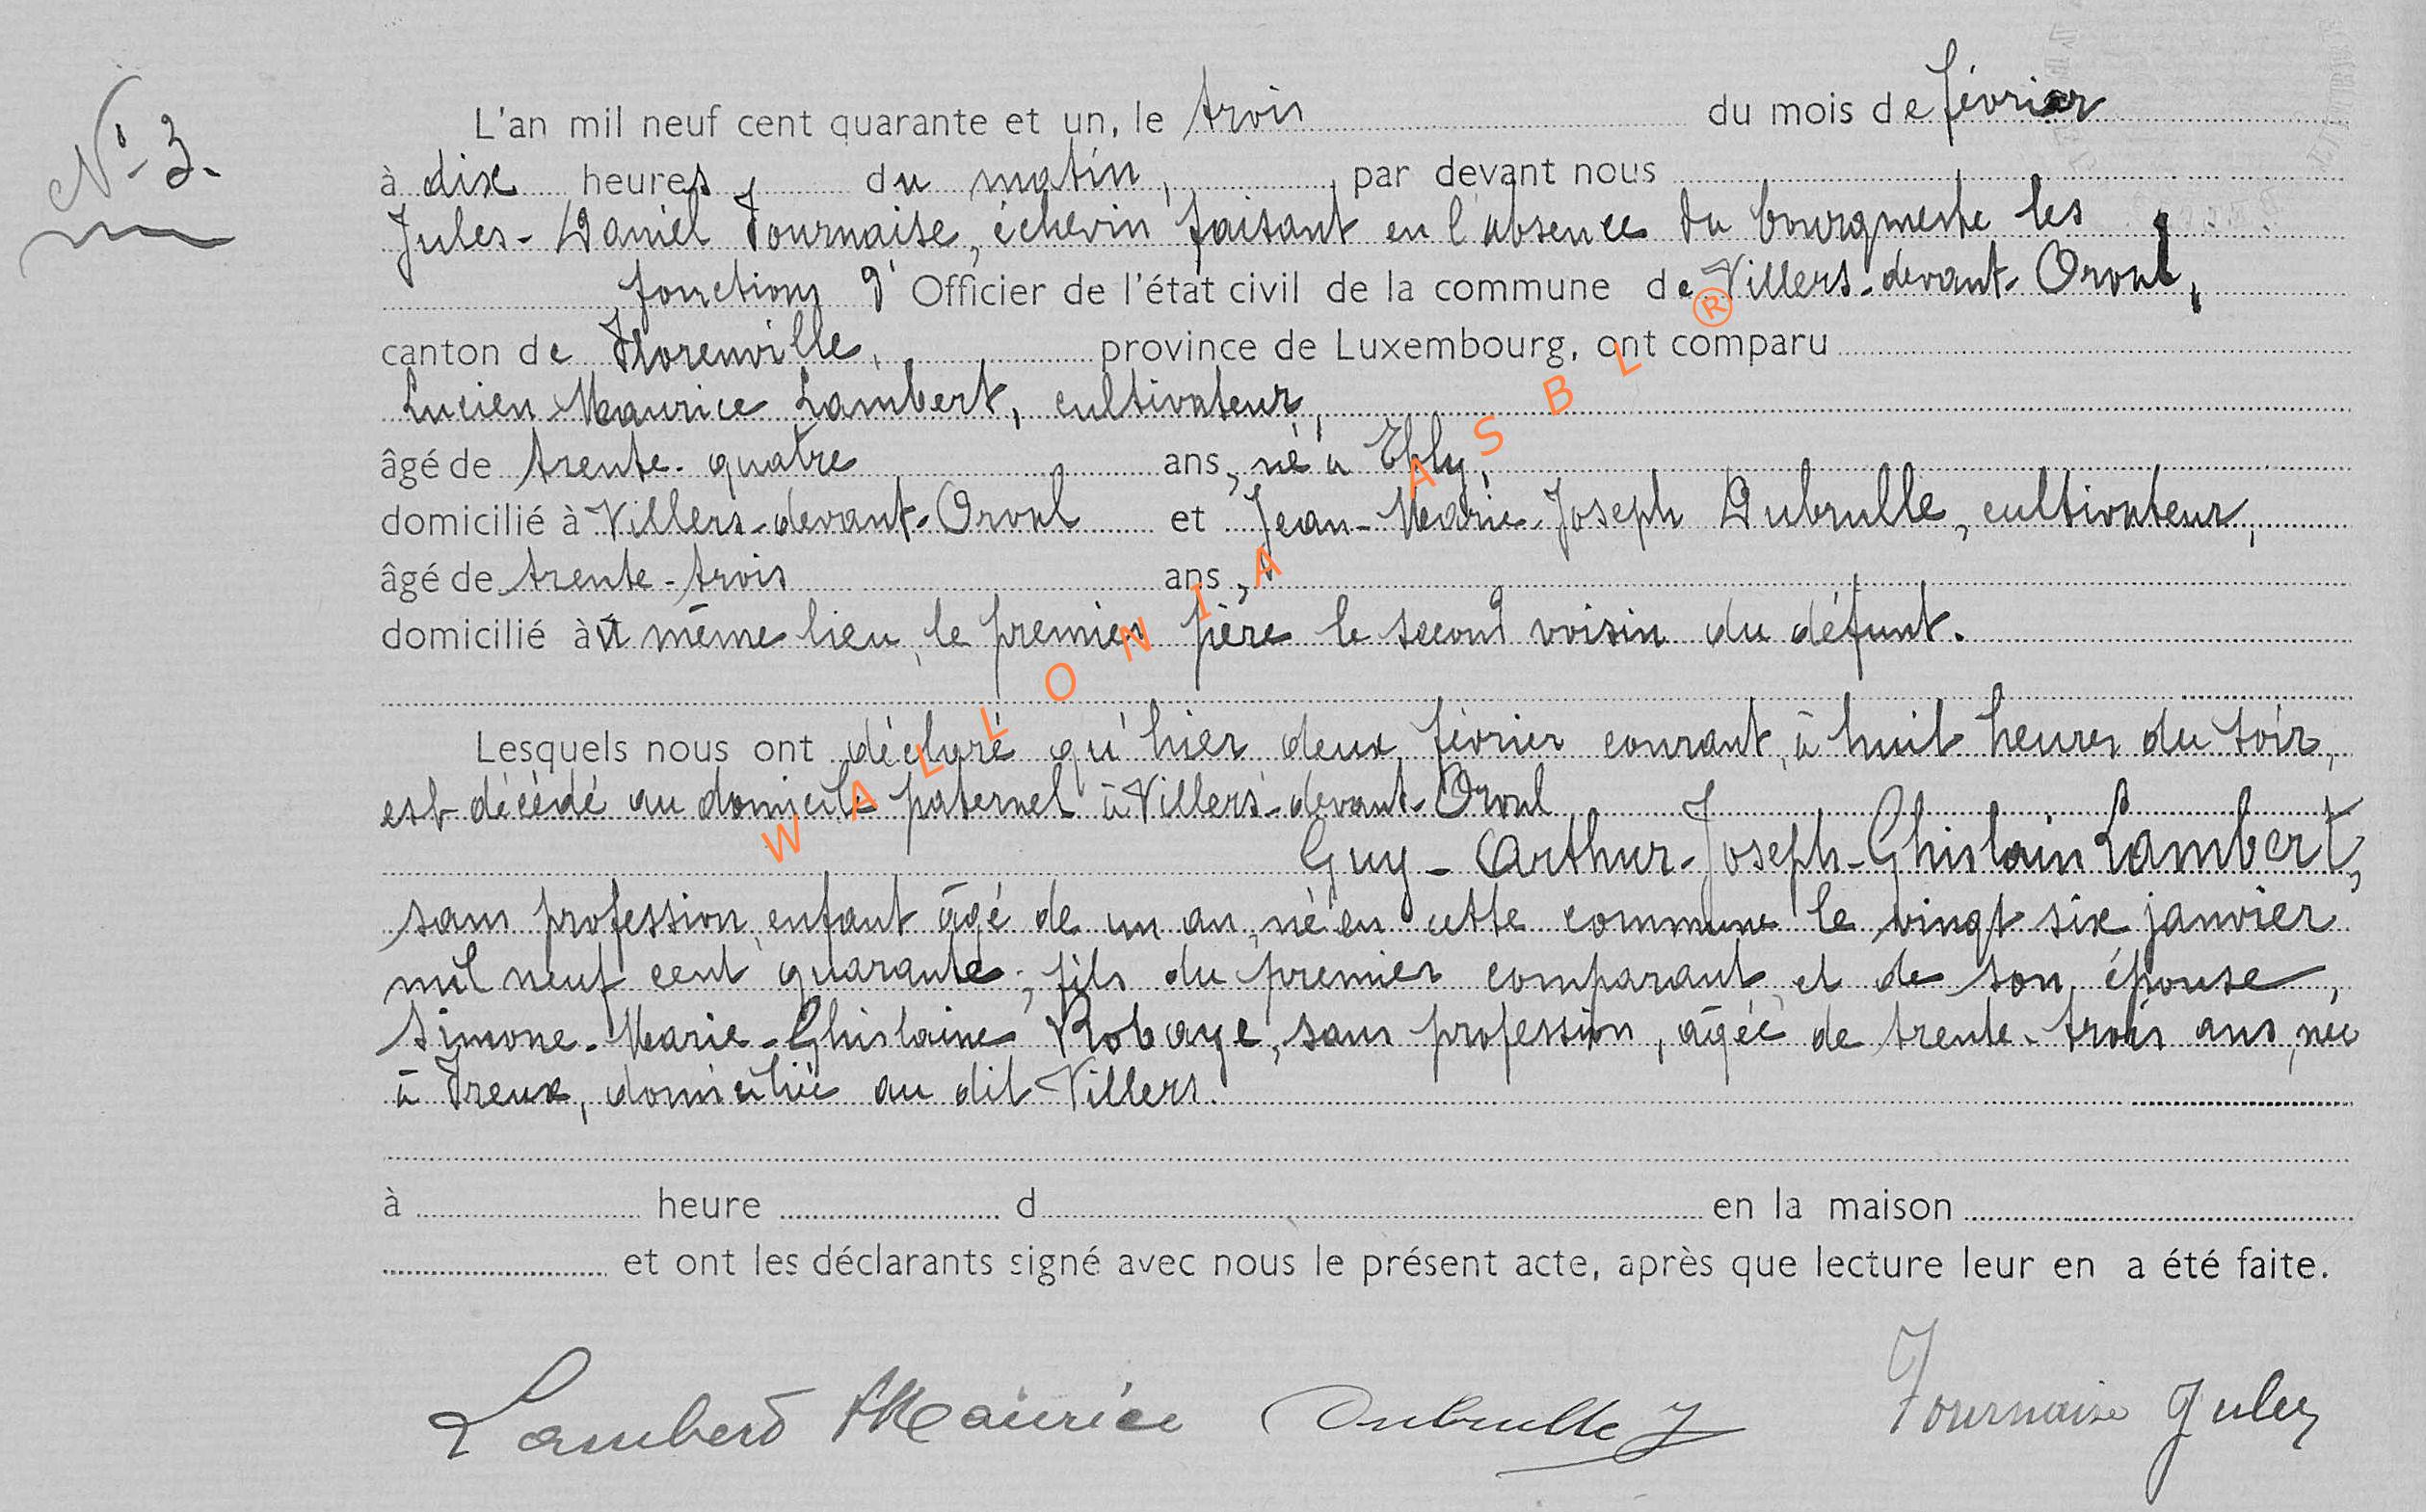 N° 3.
L'an mil neuf cent quarante et un, le trois du mois de février
à dix heures, du matin, par devant nous
Jules-Daniel Fournaise, échevin faisant en l'absence du bourgmestre les
fonctions d'Officier de l'état civil de la commune de Villers-devant-Orval,
canton de Florenville, province de Luxembourg, ont comparu
Lucien-Maurice Lambert, cultivateur,
âgé de trente-quatre ans, né à Ebly,
domicilié à Villers-devant-Orval et Jean-Marie-Joseph Dubrulle, cultivateur,
âgé de trente-trois ans,
domicilié au même lieu, le premier père le second voisin du défunt.
Lesquels nous ont déclaré qu'hier deux février courant, à huit heures du soir,
est décédé au domicile paternel à Villers-devant-Orval
Guy-Arthur-Joseph-Ghislain Lambert,
sans profession, enfant âgé de un an, né en cette commune le vingt six janvier
mil neuf cent quarante, fils du premier comparant et de son épouse,
Simone-Marie-Ghislaine Robaye, sans profession, âgée de trente-trois ans, née
à Freux, domiciliée au dit Villers.
à heure d en la maison
et ont les déclarants signé avec nous le présent acte, après que lecture leur en a été faite.
Lambert Maurice Dubrulle J Fournaise Jules
WALLONIA ASBL ®